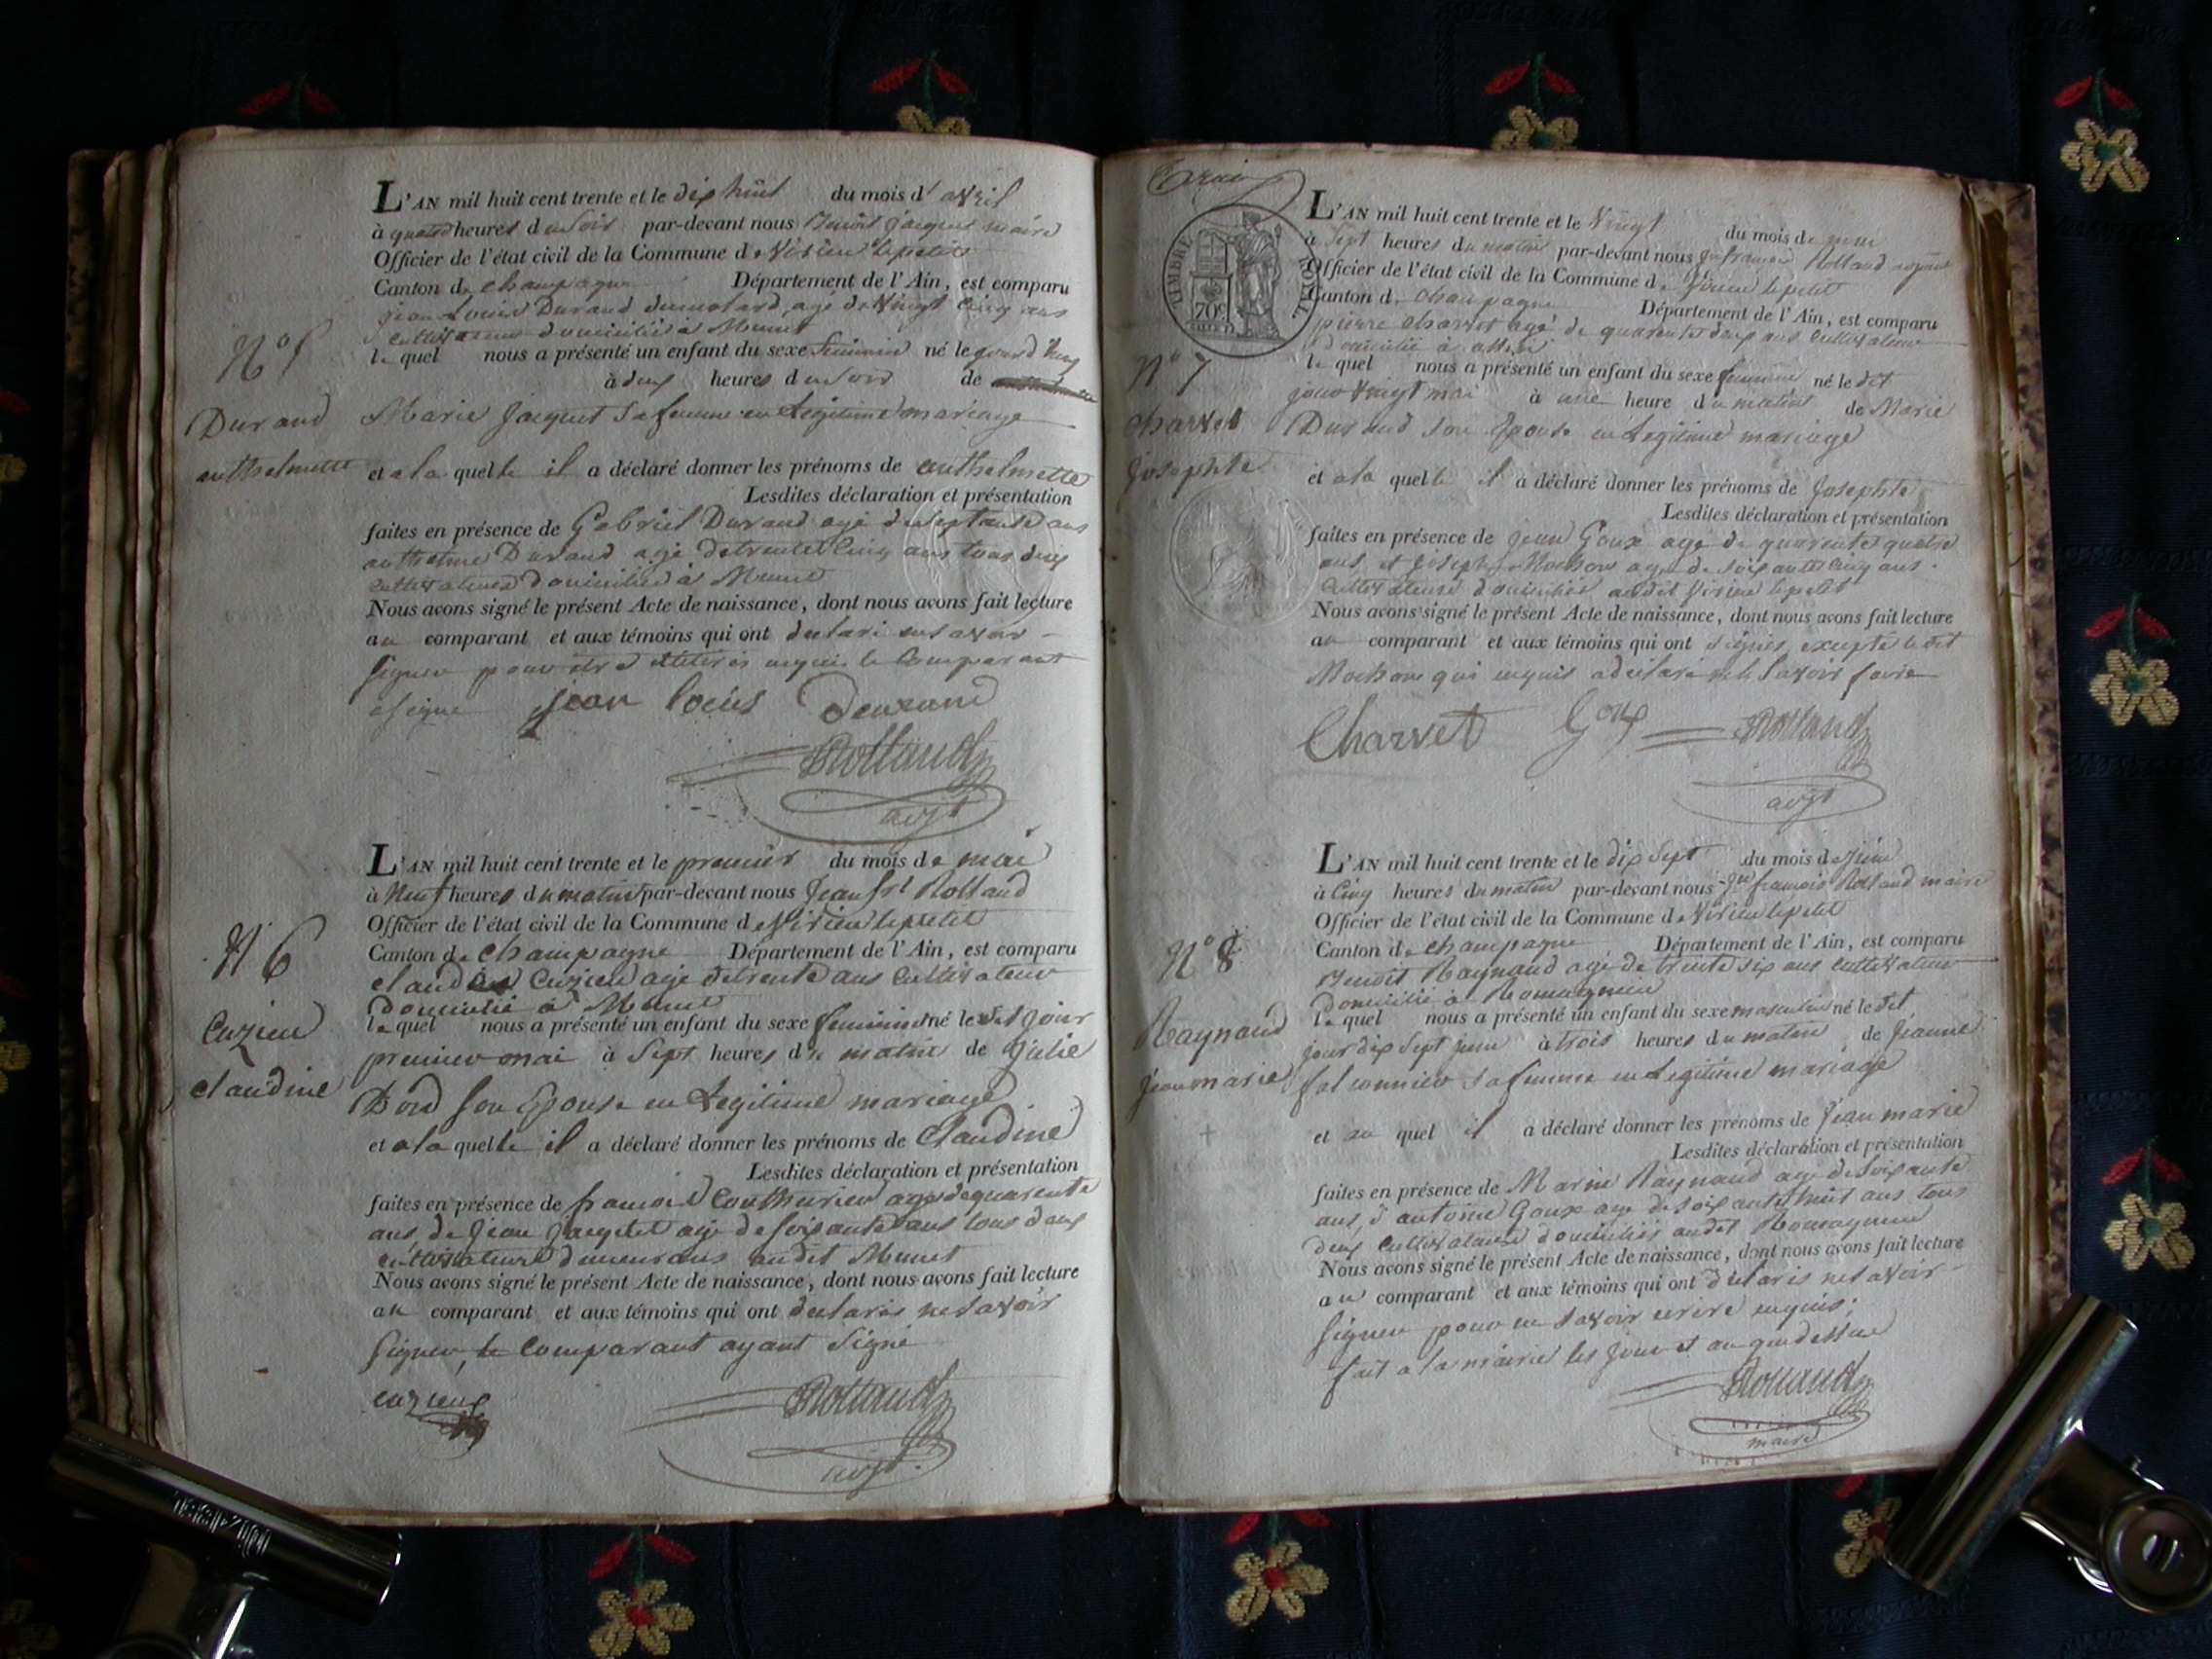 L'AN mil huit cent trente et le dix huit du mois d'avril
à quatre heures du soir par-devant nous Benoit Jacquet maire
Officier de l'état civil de la Commune de Virieu lepetit
Canton de Champagne Département de l'Ain, est comparu
jean Louis Durand agé de vingt cinq ans
cultivateur domicilié à Munet
lequel nous a présenté un enfant du sexe feminin né le
à deux heures du soir de
Marie Jacquet sa femme en Legitime mariage
et a la quelle il a déclaré donner les prénoms de anthelmette
Lesdites déclaration et présentation
faites en présence de Gabriel Durand agé de septante ans
anthelme Durand agé de trente cinq ans tous deux
cultivateurs domiciliés à Munet
Nous avons signé le présent Acte de naissance, dont nous avons fait lecture
au comparant et aux témoins qui ont declaré ne savoir
signer pour être illitérés enquis le Comparant
a signé jean louis Deurand
Rolland
adjt
N° 5
Durand
anthelmette
L'AN mil huit cent trente et le premier du mois de mai
à Neuf heures du matin par-devant nous Jean fs Rolland
Officier de l'état civil de la Commune de Virieu lepetit
Canton de Champagne Département de l'Ain, est comparu
claude Cuzieu agé de trente ans Cultivateur
domicilié à Munet
lequel nous a présenté un enfant du sexe feminin né le dit jour
premier mai à Sept heures du matin de Julie
Bord son Epouse en Legitime mariage
et a la quelle il a déclaré donner les prénoms de Claudine
Lesdites déclaration et présentation
faites en présence de francois Couthurier agé de quarente
ans, de Jean Jacquet agé de soixante ans tous deux
cultivateurs demeurans audit Munet
Nous avons signé le présent Acte de naissance, dont nous avons fait lecture
au comparant et aux témoins qui ont declarés ne savoir
Signer, le Comparant ayant Signé
cuzieux
Rolland
adjt.
N° 6
Cuzieu
claudine
TIMBRE ROYAL
70c
L'AN mil huit cent trente et le Vingt du mois de mai
à Sept heures du matin par-devant nous Jn francois Rolland adjoint
Officier de l'état civil de la Commune de Virieu lepetit
Canton de Champagne Département de l'Ain, est comparu
pierre charvet agé de quarente deux ans Cultivateur
domicilié à
lequel nous a présenté un enfant du sexe feminin né le dit
jour vingt mai à une heure du matin de Marie
Durand son Epouse en Legitime mariage
et a la quelle il a déclaré donner les prénoms de Josephte
Lesdites déclaration et présentation
faites en présence de jean Goux agé de quarente quatre
ans, et Joseph Mochon agé de soixante cinq ans.
Cultivateurs domiciliés audit Virieu lepetit
Nous avons signé le présent Acte de naissance, dont nous avons fait lecture
au comparant et aux témoins qui ont signés, excepté le dit
Mochon qui enquis a déclaré ne le savoir faire
Charvet Goux Rolland
adjt
N° 7
charvet
Josephte
L'AN mil huit cent trente et le dix Sept du mois de Juin
à Cinq heures du matin par-devant nous Jn francois Rolland maire
Officier de l'état civil de la Commune de Virieu lepetit
Canton de Champagne Département de l'Ain, est comparu
Benoit Raynaud agé de trente six ans cultivateur
domicilié à Romagneux
lequel nous a présenté un enfant du sexe masculin né le dit
jour dix Sept juin à trois heures du matin de Jeanne
falconnier sa femme en Legitime mariage
et au quel il a déclaré donner les prénoms de Jean marie
Lesdites déclaration et présentation
faites en présence de Marin Raynaud agé de soixante
ans, d'antoine Goux agé de soixante huit ans tous
deux Cultivateurs domiciliés audit Romagneux
Nous avons signé le présent Acte de naissance, dont nous avons fait lecture
au comparant et aux témoins qui ont déclarés ne savoir
signer pour ne savoir ecrire enquis.
fait a la mairie les jour et an que dessus
Rolland
maire
N° 8
Raynaud
Jean marie